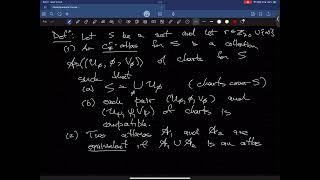 Defⁿ: Let S be a set and let r ∈ ℤ≥0 ∪ {∞}
(1) An Cʳ-atlas for S is a collection
A = {(U_φ, φ, V_φ)} of charts for S
such that
(a) S = ∪ U_φ (charts cover S)
(b) each pair (U_φ, φ, V_φ) and
(U_ψ, ψ, V_ψ) of charts is
compatible.
(2) Two atlases A_1 and A_2 are
equivalent if A_1 ∪ A_2 is an atlas